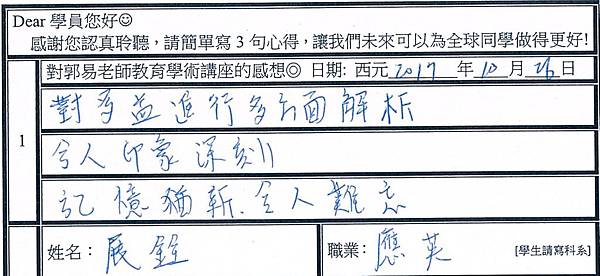 Dear 學員您好☺
感謝您認真聆聽，請簡單寫 3 句心得，讓我們未來可以為全球同學做得更好!
對郭易老師教育學術講座的感想◎ 日期: 西元 2017 年 10 月 26 日
1
對多益進行多方面解析
令人印象深刻
記憶猶新.令人難忘
姓名： 展銓 職業： 應英 [學生請寫科系]